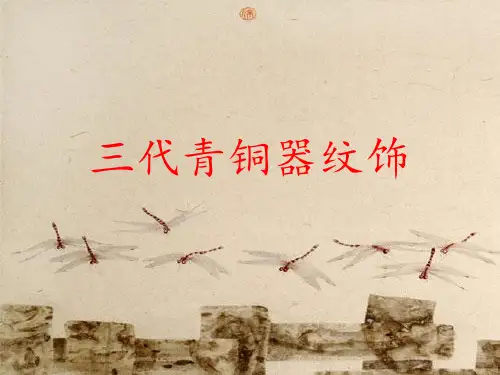 三代青铜器纹饰